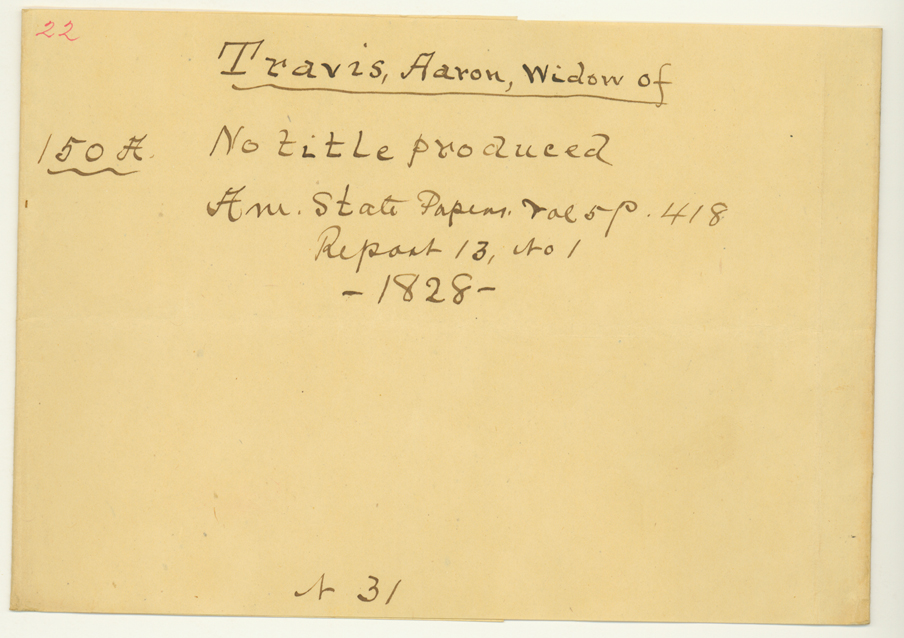 22
Travis, Aaron, Widow of
150 A. No title produced
Am. State Papers. Vol 5 p. 418
Report 13, No 1
- 1828 -
N 31